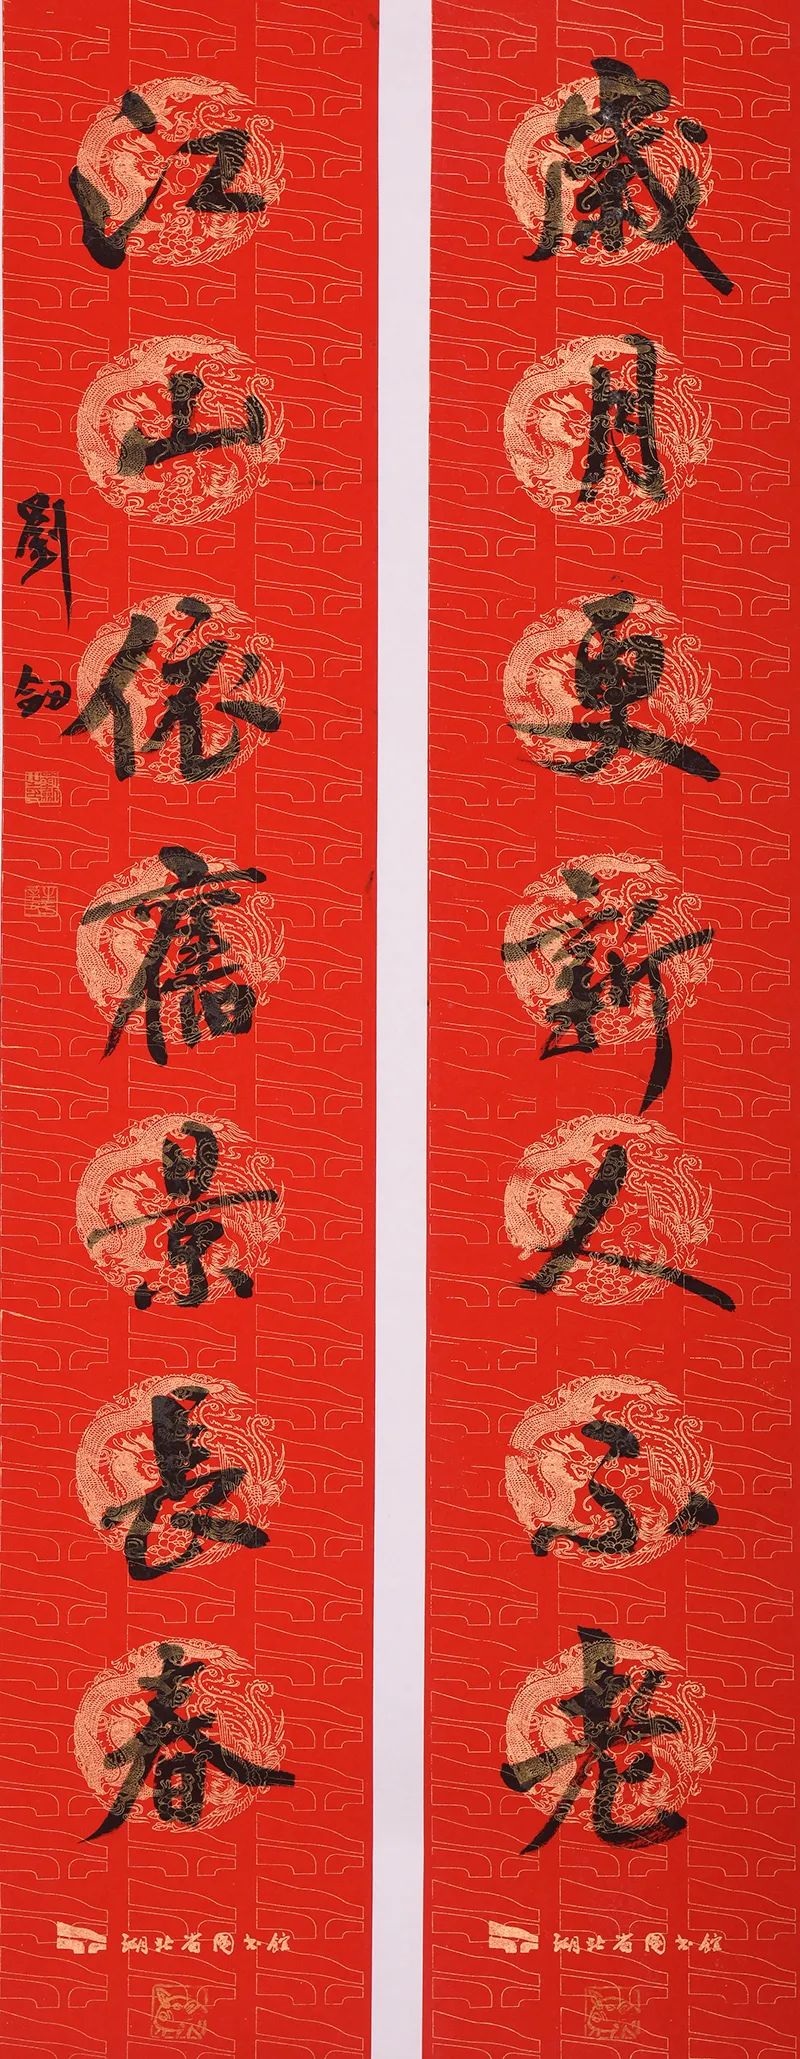 歲月更新人不老
江山依舊景長春
劉
湖北省图书馆
湖北省图书馆